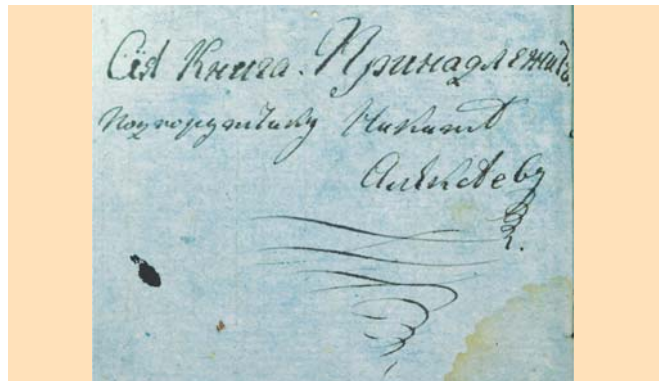 Сія Книга. Принадлежитъ
подпорутчику Никитѣ
Алексѣеву